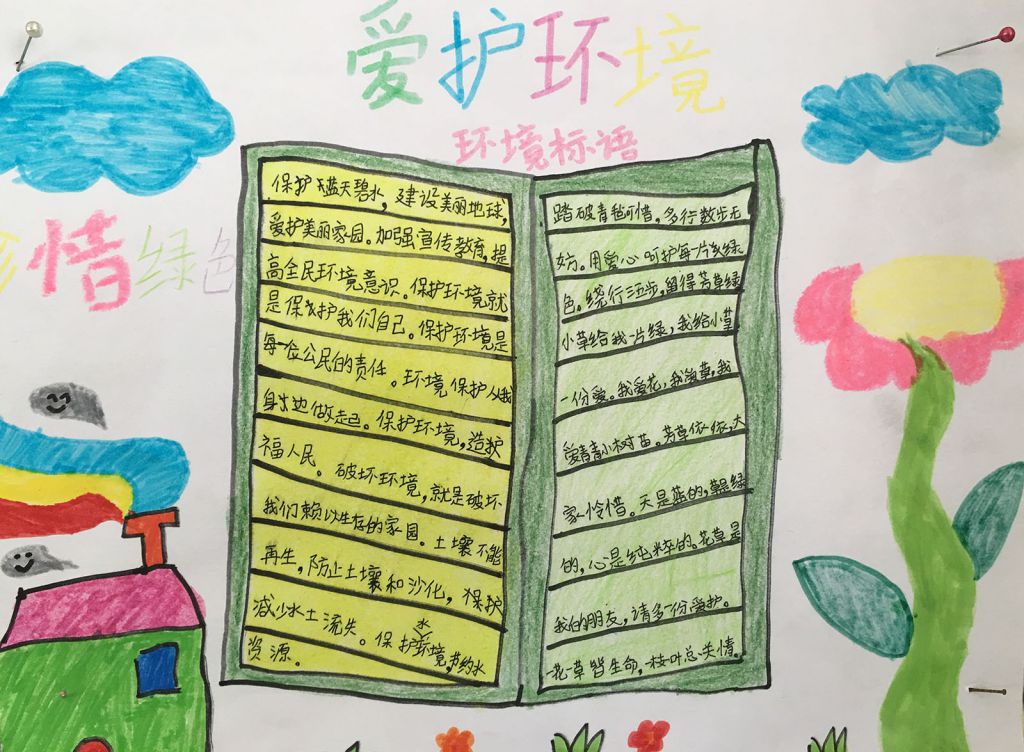 爱护环境
环境标语
珍惜绿色
保护蓝天碧水，建设美丽地球，
爱护美丽家园。加强宣传教育，提
高全民环境意识。保护环境就
是保护我们自己。保护环境是
每一位公民的责任。环境保护从我
身边做起。保护环境，造
福人民。破坏环境，就是破坏
我们赖以生存的家园。土壤不能
再生，防止土壤和沙化，保护
减少水土流失。保护环境，节约水
水
资源。
踏破青可惜，多行数步无
妨。用爱心呵护每一片绿
色。绕行三五步，留得芳草绿
小草给我一片绿，我给小草
一份爱。我爱花，我爱草，我
爱青青小树苗。芳草依依，大
家怜惜。天是蓝的，草是绿
的，心是纯粹的。花草是
我的朋友，请多一份爱护。
一花一草皆生命，一枝一叶总关情。